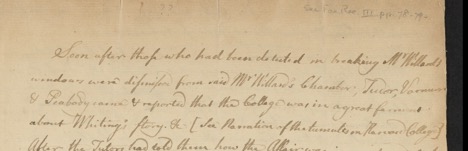 See Fac. Rec. III. pp. 78-79.
Soon after those who had been detected in breaking Mr Willard's
windows were dismissed from said Mr Willard's Chamber, Tutor,
& Peabody came & reported that the College was in a great ferment
about Whiting's story. &c [See Narration of the tumults in Harvard College]
After the Tutors had told them how the Affair was